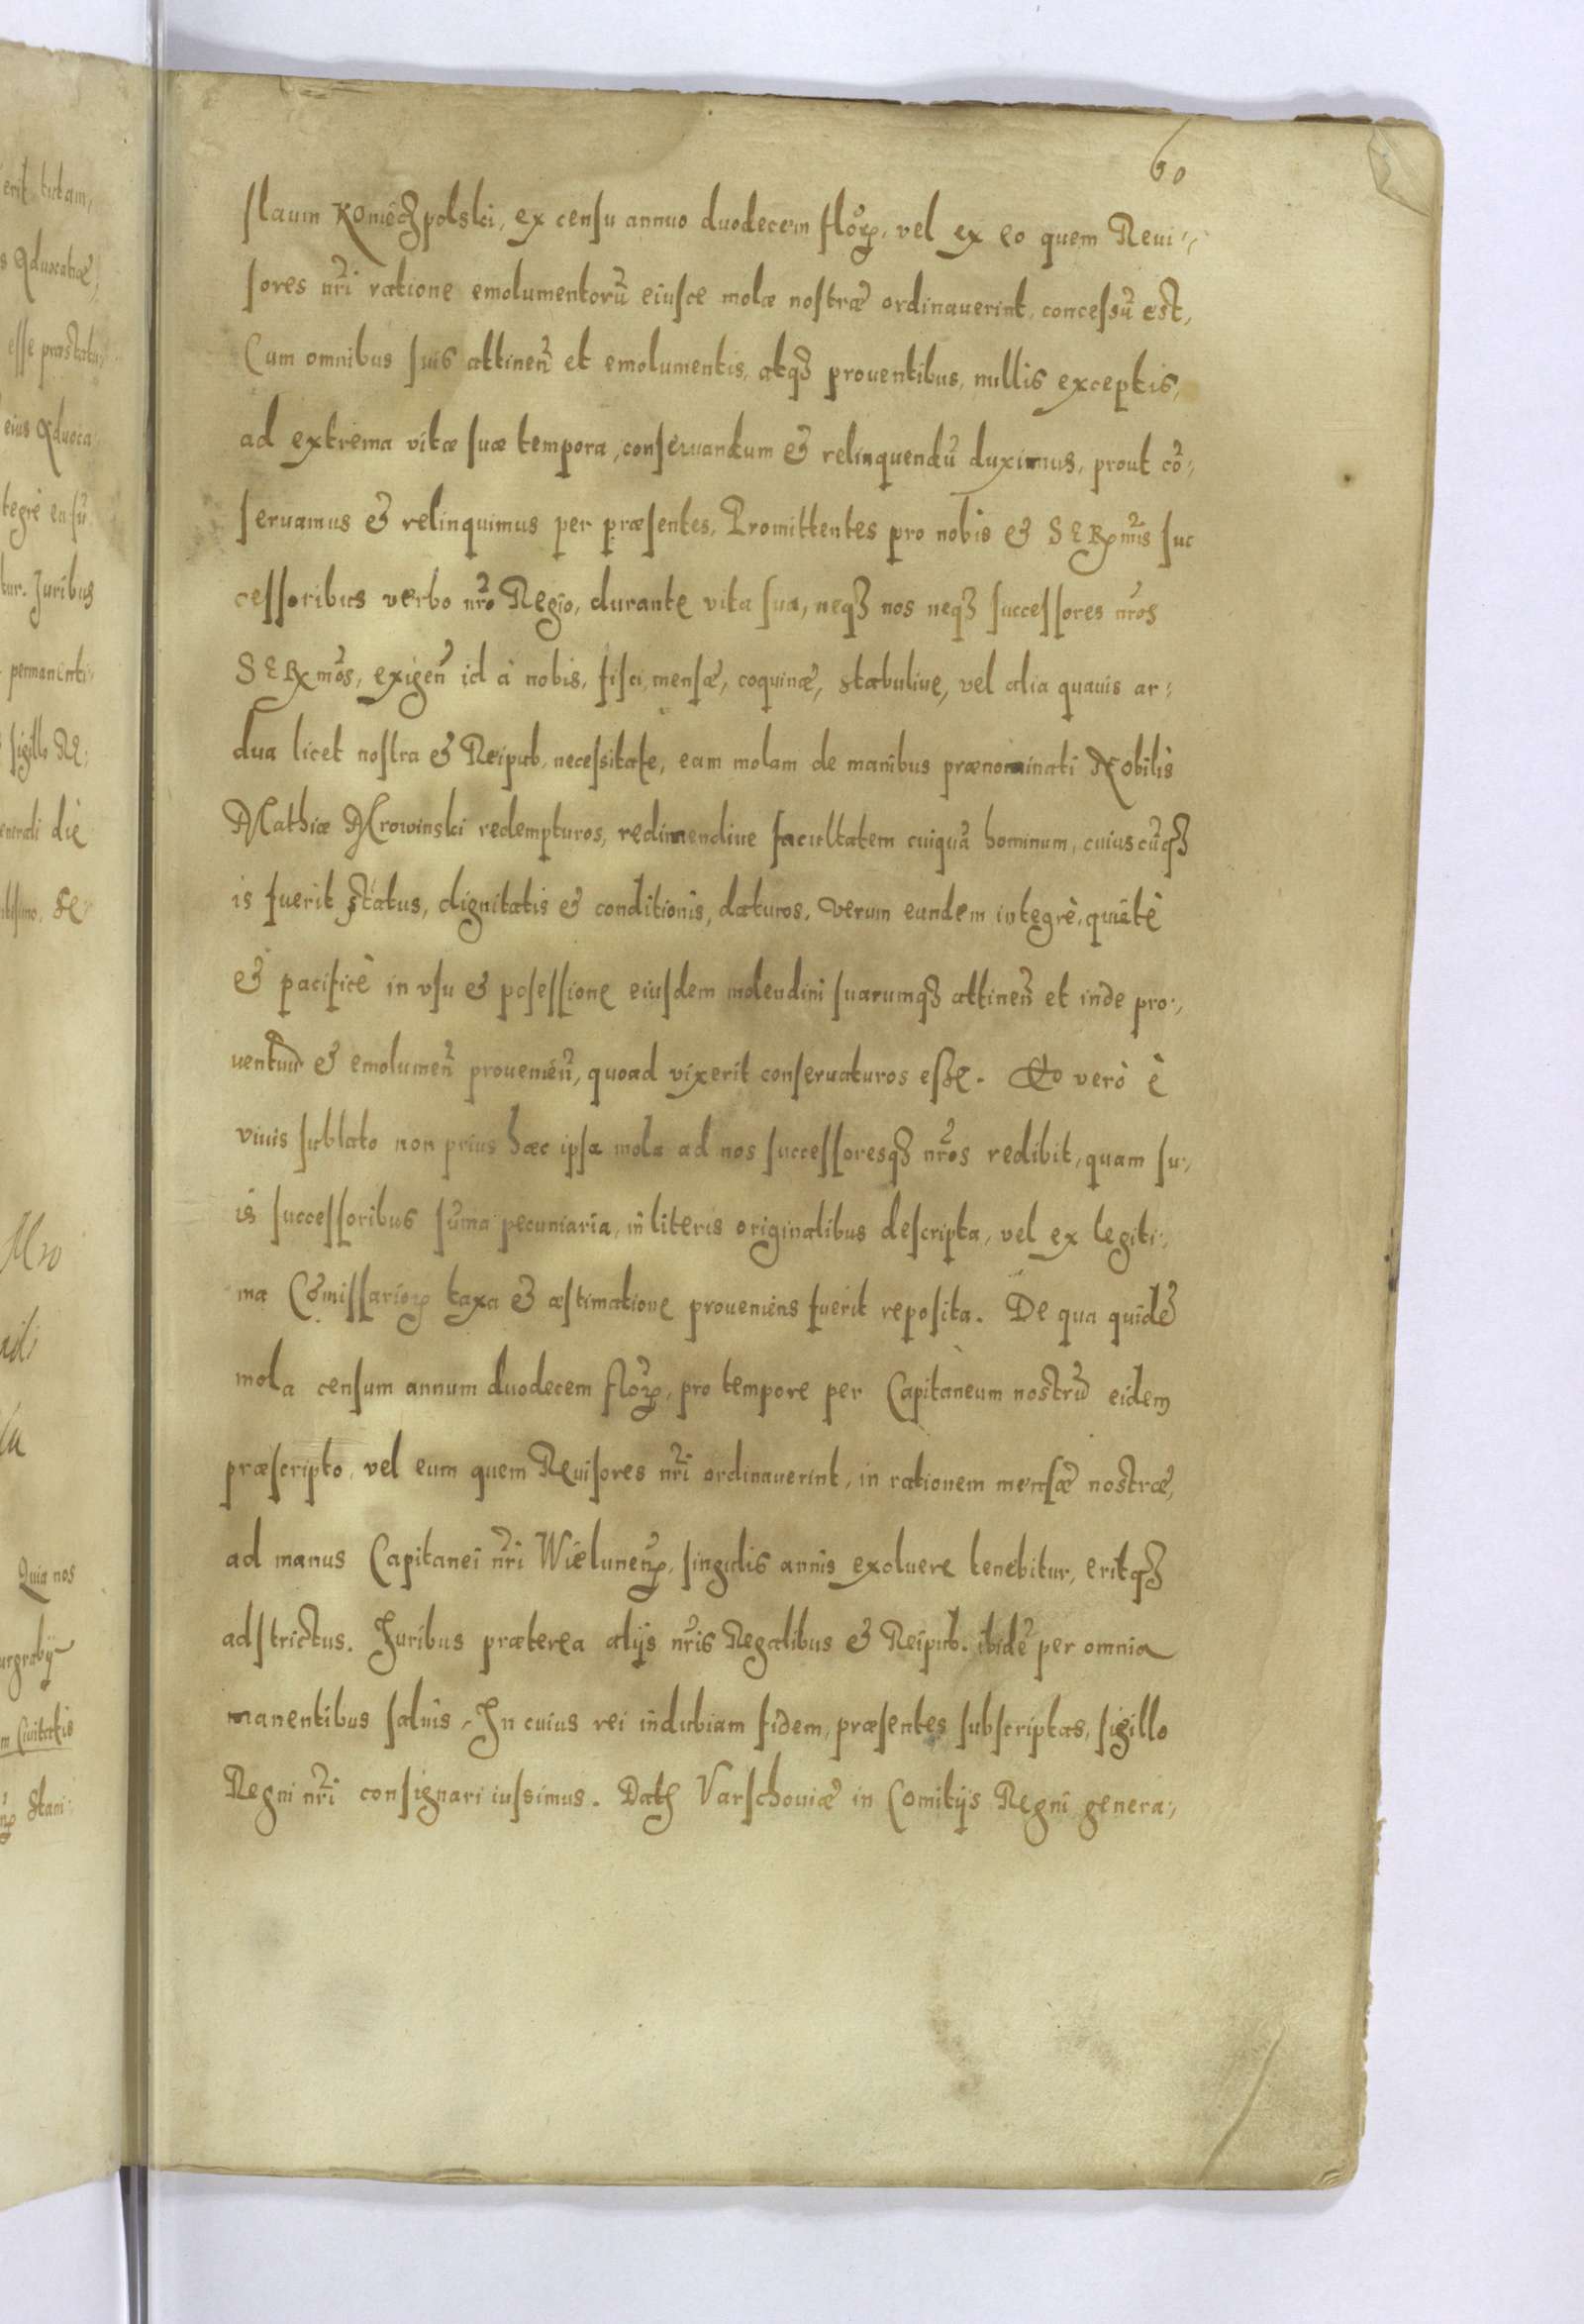 60
slaum Koniēczpolski, ex censu annuo duodecem florꝝ, vel ex eo quem Reui-,
sores nr̃i ratione emolumentorũ eiusce molæ nostræ ordinauerint, concessũ est,
Cum omnibus suis attineñ et emolumentis, atqꝫ prouentibus, nullis exceptis,
ad extrema vitæ suæ tempora, conseruandum & relinquendũ duximus, prout cõ-,
seruamus & relinquimus per præsentes. Promittentes pro nobis & SERmis suc
cessoribus verbo nr̃o Regio, durante vita sua, neqꝫ nos neqꝫ successores nr̃os
SERmos, exigeñ id à nobis, fisci, mensæ, coquinæ, stabuliue, vel alia quauis ar-,
dua licet nostra & Reipub. necessitate, eam molam de manibus prænominati Nobilis
Mathiæ Mrowinski redempturos, redimendiue facultatem cuiquã hominum, cuiuscũqꝫ
is fuerit status, dignitatis & conditionis, daturos. Verum eundem integrè, quiētè
& pacificè in vsu & posessione eiusdem molendini suarumqꝫ attineñ et inde pro-,
uentuũ & emolumeñ proueniēñ, quoad vixerit conseruaturos esse. Eo verò è
viuis sublato non prius hæc ipsa mola ad nos successoresqꝫ nr̃os redibit, quam su-,
is successoribus sũma pecuniaria, in literis originalibus descripta, vel ex legiti-,
ma Cõmissarioꝝ taxa & æstimatione proueniens fuerit reposita. De qua quidẽ
mola censum annum duodecem florꝝ, pro tempore per Capitaneum nostrũ eidem
præscripto, vel eum quem Reuisores nr̃i ordinauerint, in rationem mensæ nostræ,
ad manus Capitanei nr̃i Wieluneñ, singulis annis exoluere tenebitur, eritqꝫ
adstrictus. Juribus præterea alijs nr̃is Regalibus & Reipub. ibidẽ per omnia
manentibus saluis. In cuius rei indubiam fidem, præsentes subscriptas, sigillo
Regni nr̃i consignari iussimus. Dat Varschouiæ in Comitijs Regni genera-,
erit tutam,
Aduocatiæ
esse præstatu,
eius Aduoca
tegrè
tur. Juribus
permanenti-
sigillo Re-
enerali die
Mro
Quia nos
urgrabij
m Ciuitatis
Stani